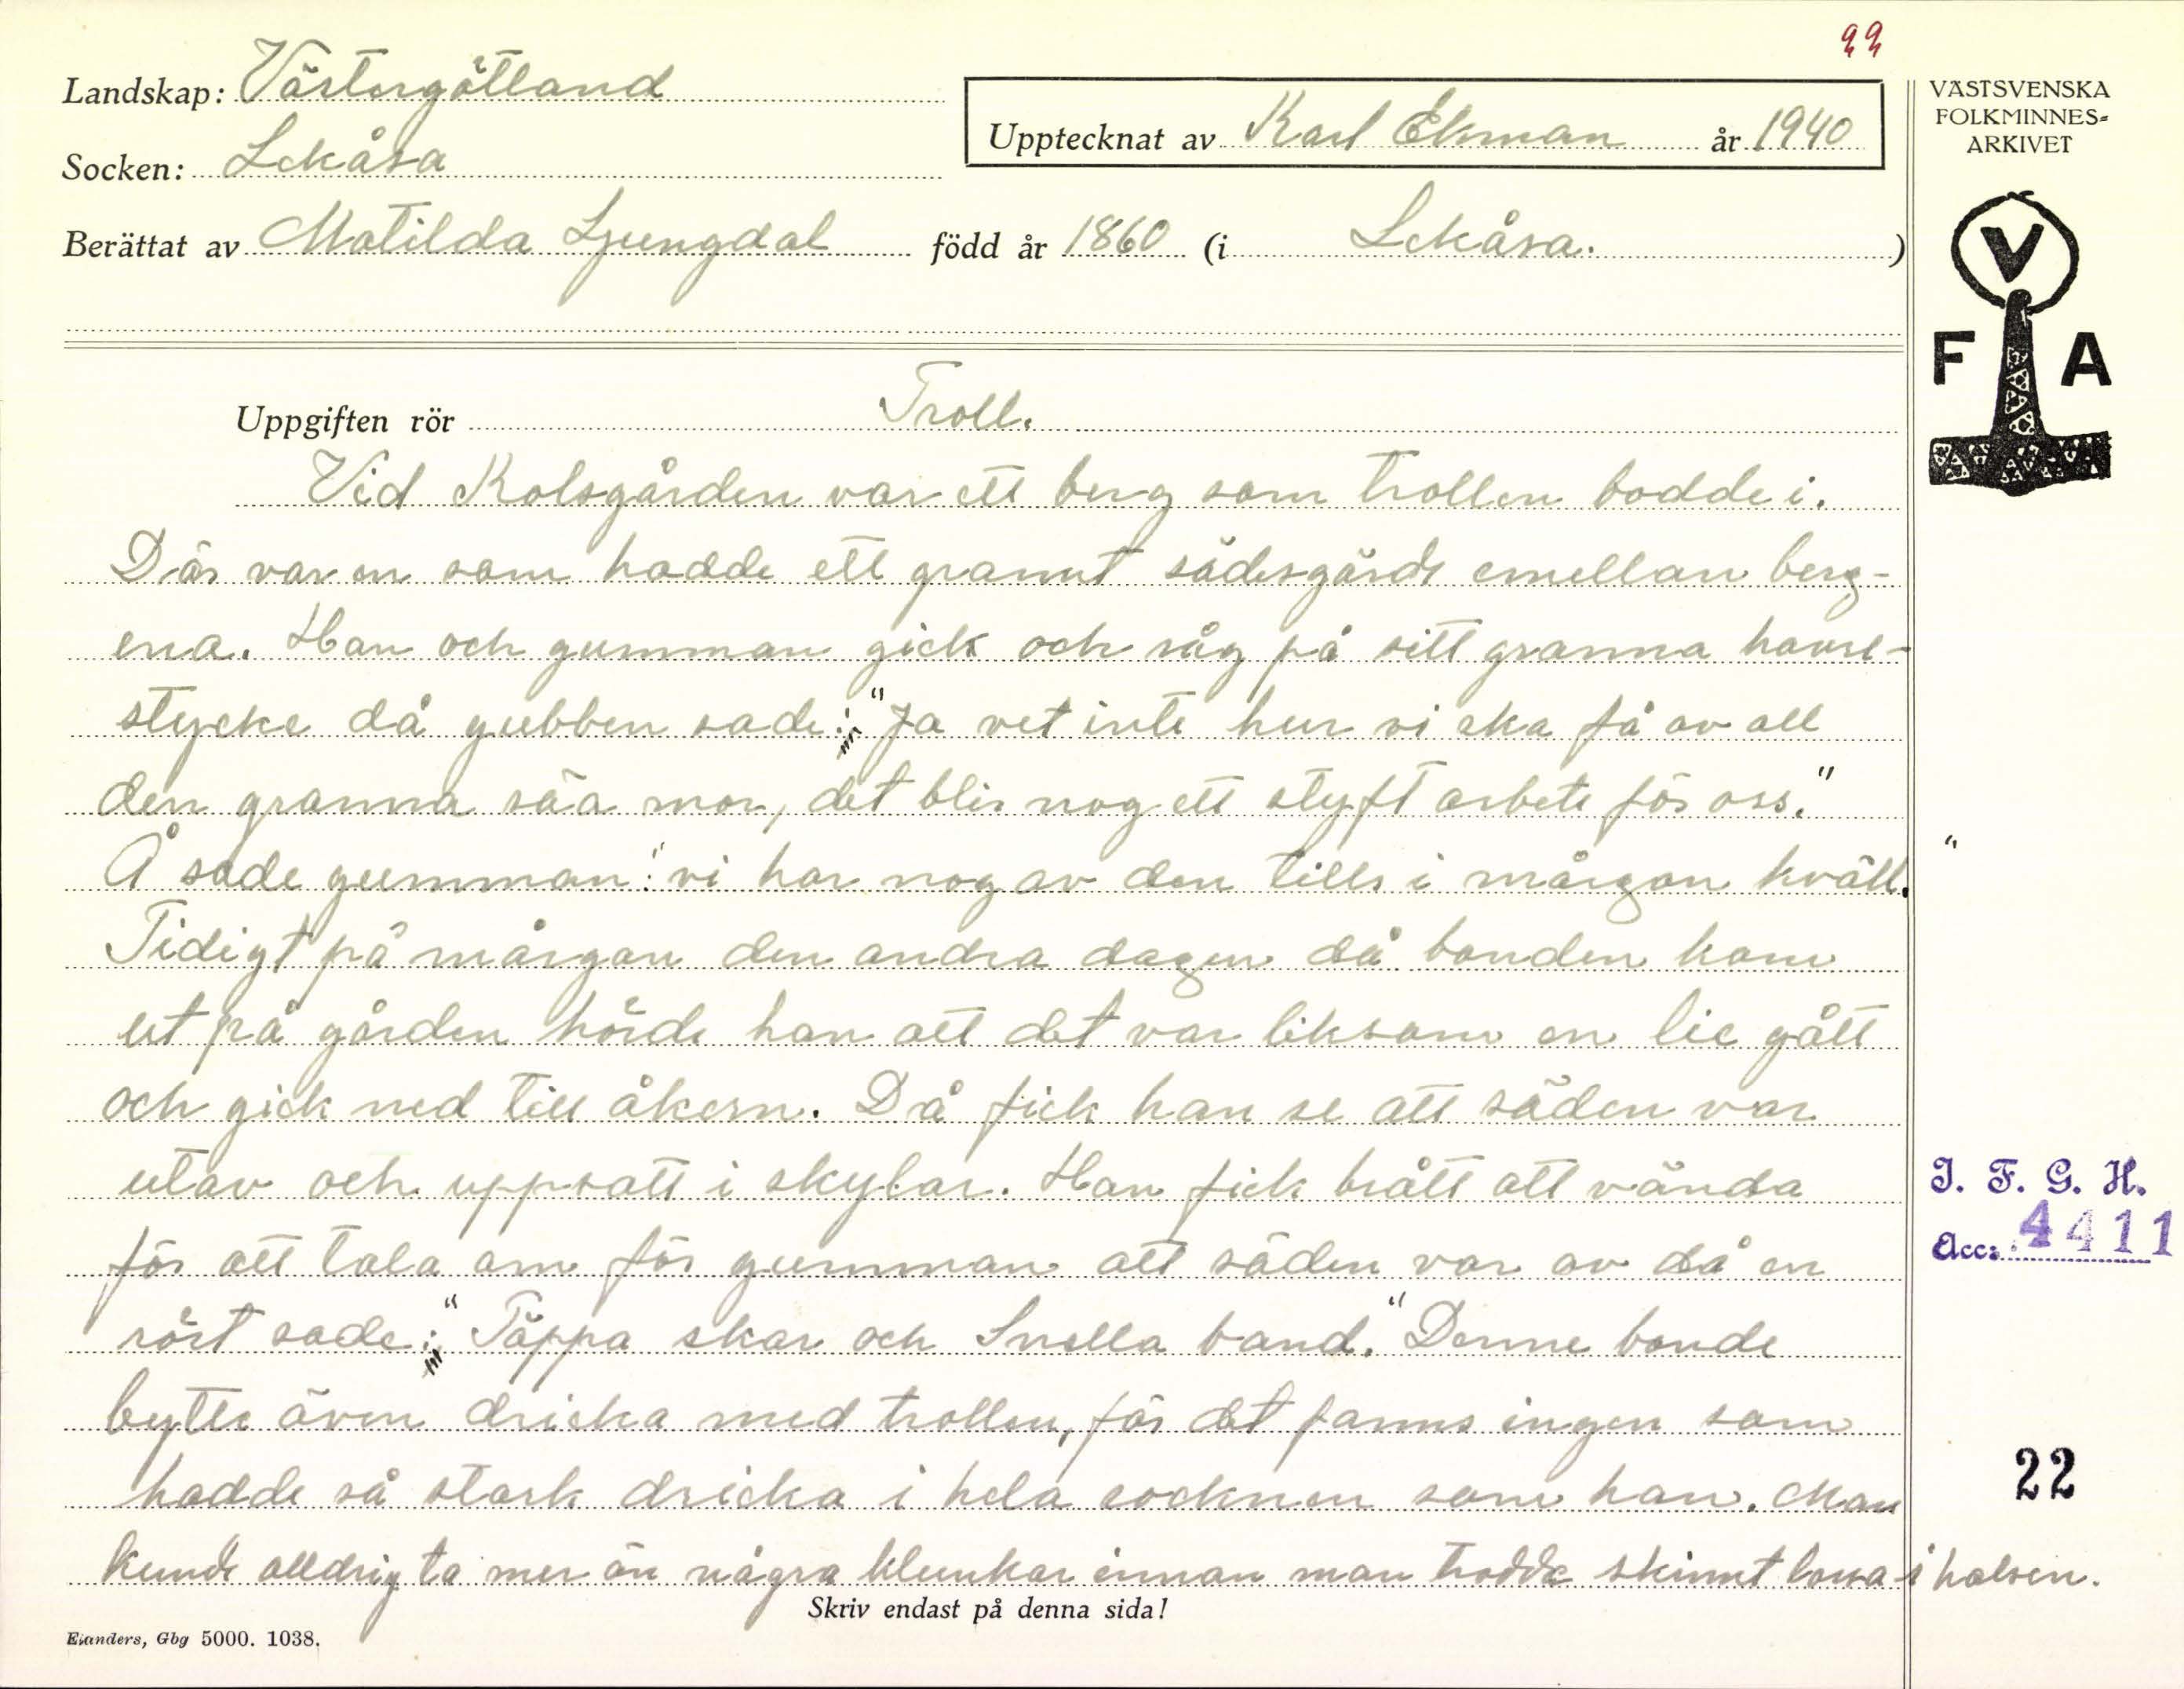 99
Landskap: Västergötland
Socken: Lekåsa
Upptecknat av Karl Ekman år 1940
Berättat av Matilda Ljungdal född år 1860 (i Lekåsa.)
VÄSTSVENSKA
FOLKMINNES=
ARKIVET
V
F A
Uppgiften rör Troll.
Vid Kolsgården var ett berg som trollen bodde i.
Där var en som hadde ett grannt sädesgärde emellan berg-
ena. Han och gumman gick och såg på sitt granna havre-
stycke då gubben sade: "Ja vet inte hur vi ska få av all
den granna säa mor, det blir nog ett styft arbete för oss."
Å sade gumman: "vi har nog av den tills i mårgon kväll."
Tidigt på mårgon den andra dagen då bonden kom
ut på gården hörde han att det var liksom en lie gått
och gick ned till åkern. Då fick han se att säden var
utav och uppsatt i skylar. Han fick brått att vända
för att tala om för gumman att säden var av då en
röst sade: "Täppa skar och Snella band." Denne bonde
bytte även dricka med trollen, för det fanns ingen som
hadde så stark dricka i hela socknen som han. Man
kunde alldrig ta mer än några klunkar innan man trodde skinnt lossa i halsen.
I. F. G. H.
Acc: 4411
22
Skriv endast på denna sida!
Elanders, Gbg 5000. 1038.